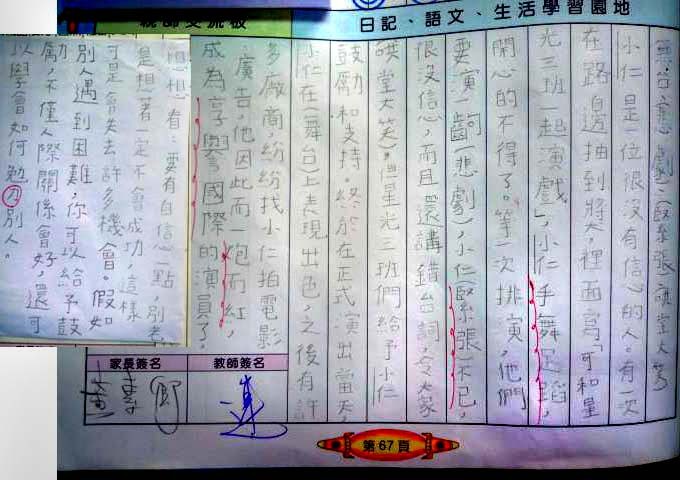 日記、語文、生活學習園地
親師交流板
舞台悲劇:緊張 哄堂大笑
小仁是一位很沒有信心的人。有一次
在路邊抽到將大,裡面寫「可和星
光三班一起演戲」,小仁手舞足蹈,
開心的不得了。第一次排演,他們
要演一齣(悲劇),小仁緊張不已,
很沒信心,而且還講錯台詞,令大家
哄堂大笑,但星光三班們給予小仁
鼓勵和支持。終於在正式演出當天,
小仁在(舞台)上表現出色,之後有許
多廠商,紛紛找小仁拍電影
、廣告,他因此而一炮而紅,
成為享譽國際的演員了。
思想者:要有自信心一點,別老
是想著一定不會成功,這樣
可是會失去許多機會。假如
別人遇到困難,你可以給予鼓
勵,不僅人際關係會好,還可
以學會如何勉力別人。
家長簽名
教師簽名
第67頁